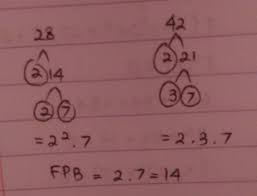 28 42
2 14 2 21
2 7 3 7
= 2². 7 = 2. 3. 7
FPB = 2. 7 = 14